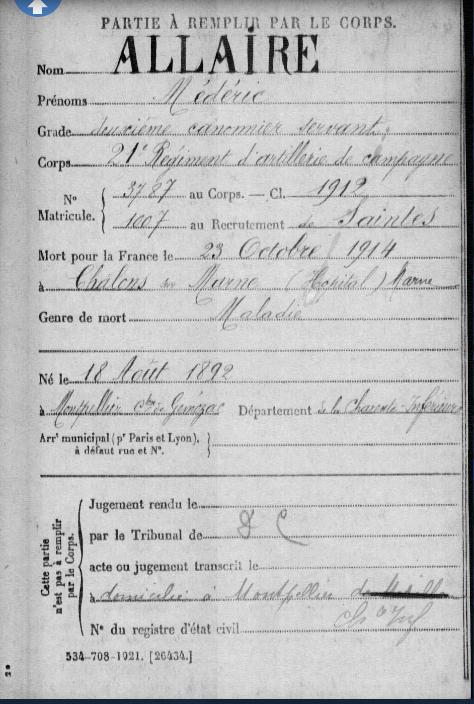 PARTIE À REMPLIR PAR LE CORPS.
Nom ALLAIRE
Prénoms Médéric
Grade deuxième canonnier servant
Corps 21e Régiment d'artillerie de campagne
N° Matricule. { 3787 au Corps. — Cl. 1912
1007 au Recrutement de Saintes
Mort pour la France le 23 Octobre 1914
à Chalons sur Marne (Hôpital) Marne
Genre de mort Maladie
Né le 18 Août 1892
à Montpellier Cton de Gémozac Département de la Charente-Inférieure
Arrt municipal (pr Paris et Lyon), à défaut rue et N°. }
Cette partie n'est pas à remplir par le Corps.
Jugement rendu le
par le Tribunal de D C
acte ou jugement transcrit le
à domicilié à Montpellier de
Chte Inf
N° du registre d'état civil
534-708-1921. [26434.]